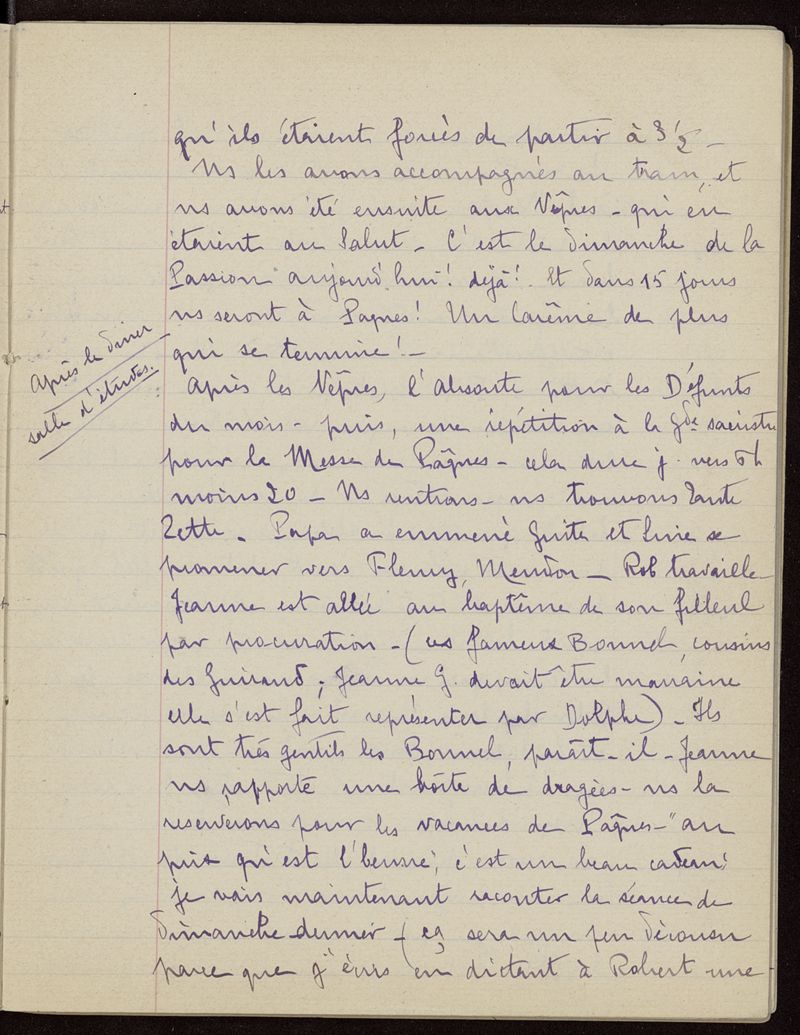 qu'ils étaient forcés de partir à 3 1/2 –
Ns les avons accompagnés au tram, et
ns avons été ensuite aux Vêpres – qui en
étaient au Salut – C'est le dimanche de la
Passion aujourd'hui ! déjà ! Et dans 15 jours
ns serons à Pâques ! Un Carême de plus
qui se termine ! –
Après le dîner
salle d'études.
Après les Vêpres, l'absoute pour les Défunts
du mois – puis, une répétition à la Gde sacristie
pour la Messe de Pâques – cela dure j. vers 6h
moins 20 – Ns rentrons – ns trouvons Tante
Zette. Papa a emmené Guite et Line se
promener vers Fleury, Meudon – Rob travaille
Jeanne est allée au baptême de son filleul
par procuration – (ces fameux Bonnel, cousins
des Guiraud ; Jeanne G. devait être marraine
elle s'est fait représenter par Dolphe) – Ils
sont très gentils les Bonnel, paraît-il – Jeanne
ns rapporte une boîte de dragées – ns la
reserverons pour les vacances de Pâques – "au
prix qu'est l'beurre, c'est un beau cadeau !
je vais maintenant raconter la séance de
dimanche dernier – (ça sera un peu décousu
parce que j'écris en dictant à Robert une